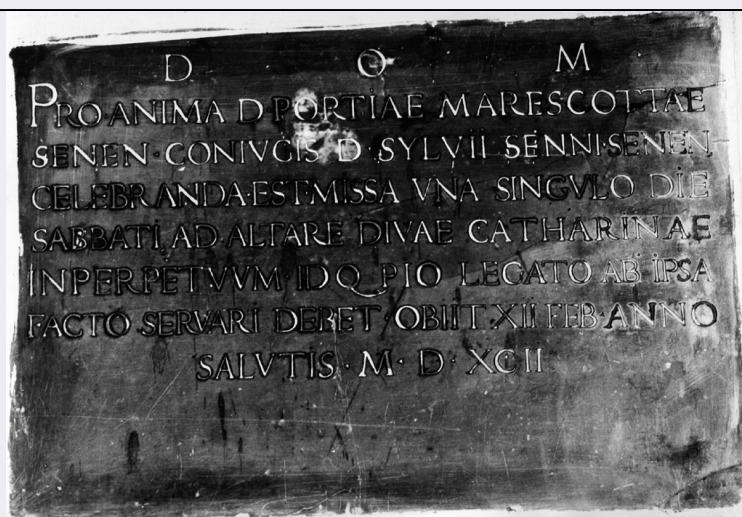 D O M
PRO ANIMA D PORTIAE MARESCOTTAE
SENEN · CONIVGIS D · SYLVII SENNI · SENEN
CELEBRANDA · EST · MISSA VNA SINGVLO DIE
SABBATI AD ALTARE DIVAE CATHARINAE
IN PERPETVVM · IDQ PIO LEGATO AB IPSA
FACTO SERVARI DEBET · OBIIT XII FEB · ANNO
SALVTIS · M · D · XCII